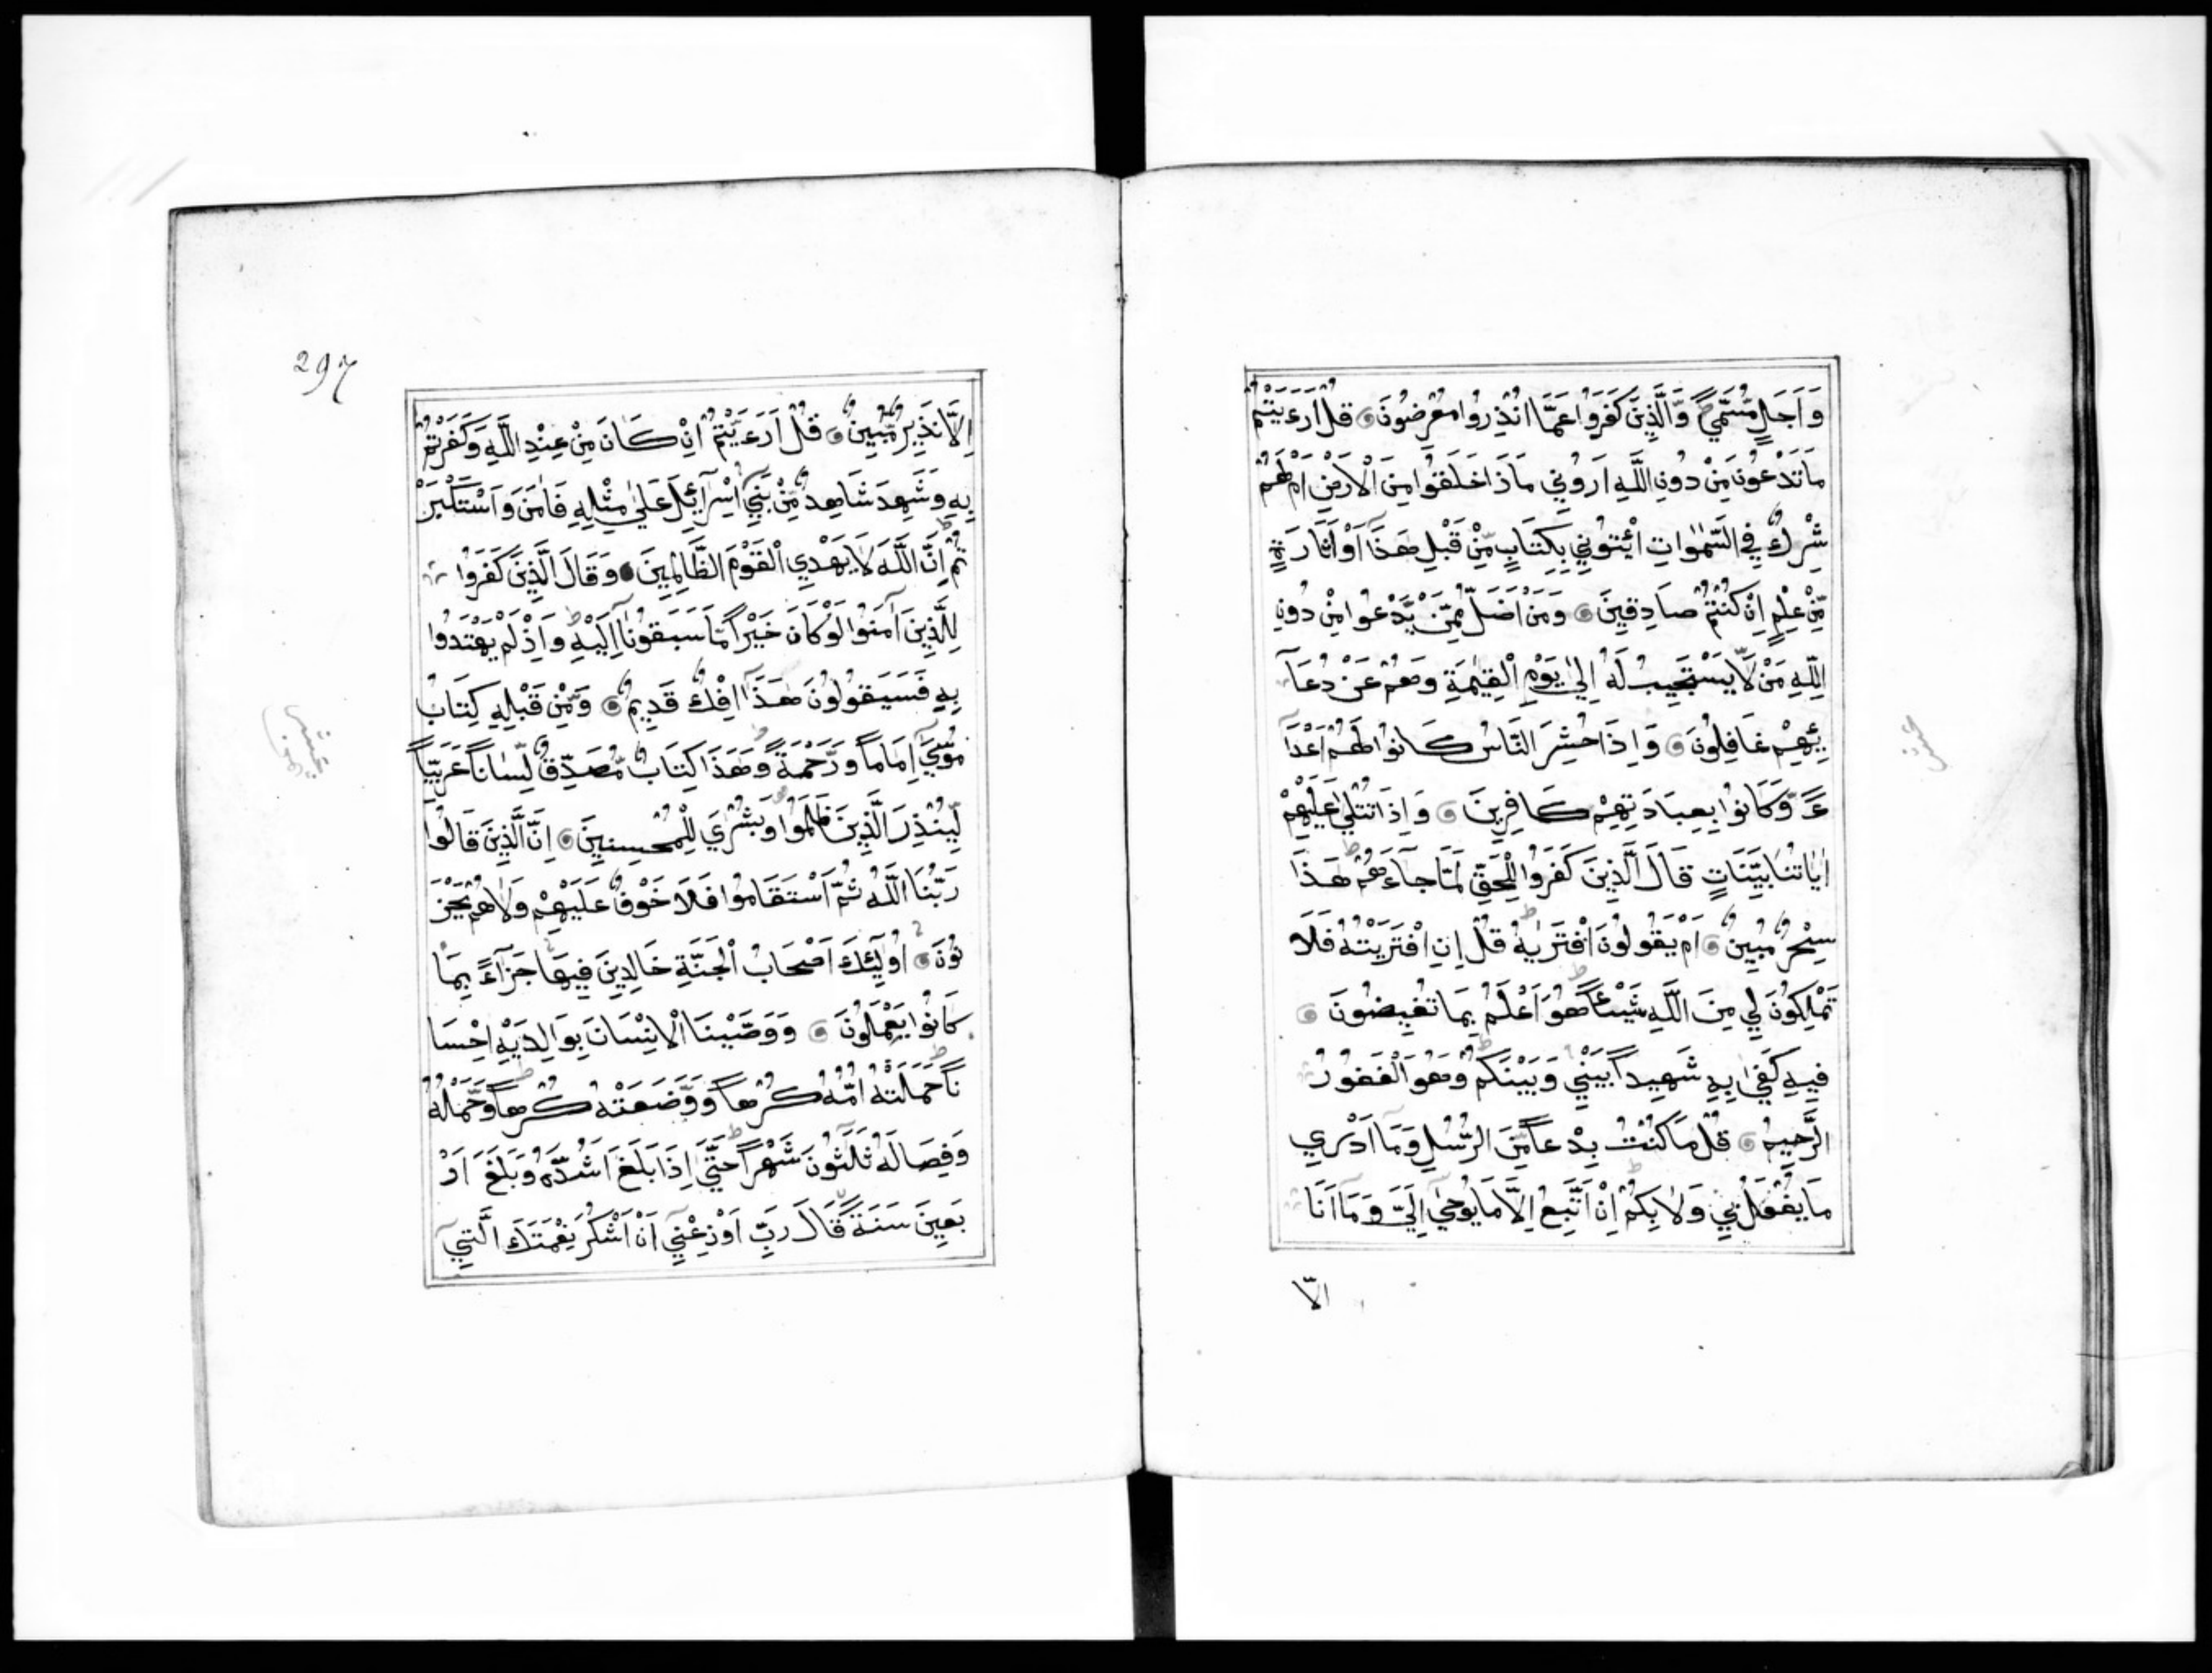 وَاَجَلٍ مُّسَمًّي وَّالَّذِينَ كَفَرُوا عَمَّا اُنْذِرُوا مُعْرِضُونَ قُلْ اَرَءَيْتُمْ
مَاتَدْعُونَ مِنْ دُونِ اللَّهِ اَرُونِي مَاذَا خَلَقُوا مِنَ الْاَرْضِ اَمْ لَهُمْ
شِرْكٌ فِي السَّمٰوَاتِ اِئْتُونِي بِكِتَابٍ مِّنْ قَبْلِ هَذَآ اَوْ اَثَارَةٍ
مِّنْ عِلْمٍ اِنْ كُنْتُمْ صَادِقِينَ وَمَنْ اَضَلُّ مِمَّنْ يَّدْعُوا مِنْ دُونِ
اللَّهِ مَنْ لَّا يَسْتَجِيبُ لَهُ اِلَىٰ يَوْمِ الْقِيٰمَةِ وَهُمْ عَنْ دُعَآ
ئِهِمْ غَافِلُونَ وَاِذَا حُشِرَ النَّاسُ كَانُوا لَهُمْ اَعْدَآ
ءً وَّكَانُوا بِعِبَادَتِهِمْ كَافِرِينَ وَاِذَا تُتْلَىٰ عَلَيْهِمْ
اٰيَاتُنَا بَيِّنَاتٍ قَالَ الَّذِينَ كَفَرُوا لِلْحَقِّ لَمَّا جَآءَهُمْ هَذَا
سِحْرٌ مُبِينٌ اَمْ يَقُولُونَ افْتَرَيٰهُ قُلْ اِنِ افْتَرَيْتُهُ فَلَا
تَمْلِكُونَ لِي مِنَ اللَّهِ شَيْئًا هُوَ اَعْلَمُ بِمَا تُفِيضُونَ
فِيهِ كَفَىٰ بِهِ شَهِيداً بَيْنِي وَبَيْنَكُمْ وَهُوَ الْغَفُورُ
الرَّحِيمُ قُلْ مَا كُنْتُ بِدْعاً مِّنَ الرُّسُلِ وَمَا اَدْرِي
مَا يُفْعَلُ بِي وَلَا بِكُمْ اِنْ اَتَّبِعُ اِلَّا مَا يُوحَىٰ اِلَيَّ وَمَآ اَنَا
الّا
297
اِلَّا نَذِيرٌ مُّبِينٌ قُلْ اَرَءَيْتُمْ اِنْ كَانَ مِنْ عِنْدِ اللَّهِ وَكَفَرْتُمْ
بِهِ وَشَهِدَ شَاهِدٌ مِّنْ بَنِي اِسْرَآئِلَ عَلَىٰ مِثْلِهِ فَاٰمَنَ وَاسْتَكْبَرْ
تُمْ اِنَّ اللَّهَ لَا يَهْدِي الْقَوْمَ الظَّالِمِينَ وَقَالَ الَّذِينَ كَفَرُوا
لِلَّذِينَ اٰمَنُوا لَوْ كَانَ خَيْراً مَّا سَبَقُونَآ اِلَيْهِ وَاِذْ لَمْ يَهْتَدُوا
بِهِ فَسَيَقُولُونَ هَذَآ اِفْكٌ قَدِيمٌ وَمِنْ قَبْلِهِ كِتَابُ
مُوسَىٰ اِمَاماً وَرَحْمَةً وَهَذَا كِتَابٌ مُّصَدِّقٌ لِّسَاناً عَرَبِيّاً
لِّيُنْذِرَ الَّذِينَ ظَلَمُوا وَبُشْرَي لِلْمُحْسِنِينَ اِنَّ الَّذِينَ قَالُوا
رَبُّنَا اللَّهُ ثُمَّ اسْتَقَامُوا فَلَا خَوْفٌ عَلَيْهِمْ وَلَا هُمْ يَحْزَ
نُونَ اُولٰٓئِكَ اَصْحَابُ الْجَنَّةِ خَالِدِينَ فِيهَا جَزَآءً بِمَا
كَانُوا يَعْمَلُونَ وَوَصَّيْنَا الْاِنْسَانَ بِوَالِدَيْهِ اِحْسَا
ناً حَمَلَتْهُ اُمُّهُ كُرْهاً وَّوَضَعَتْهُ كُرْهاً وَحَمْلُهُ
وَفِصَالُهُ ثَلٰثُونَ شَهْراً حَتَّىٰ اِذَا بَلَغَ اَشُدَّهُ وَبَلَغَ اَرْ
بَعِينَ سَنَةً قَالَ رَبِّ اَوْزِعْنِي اَنْ اَشْكُرَ نِعْمَتَكَ الَّتِي